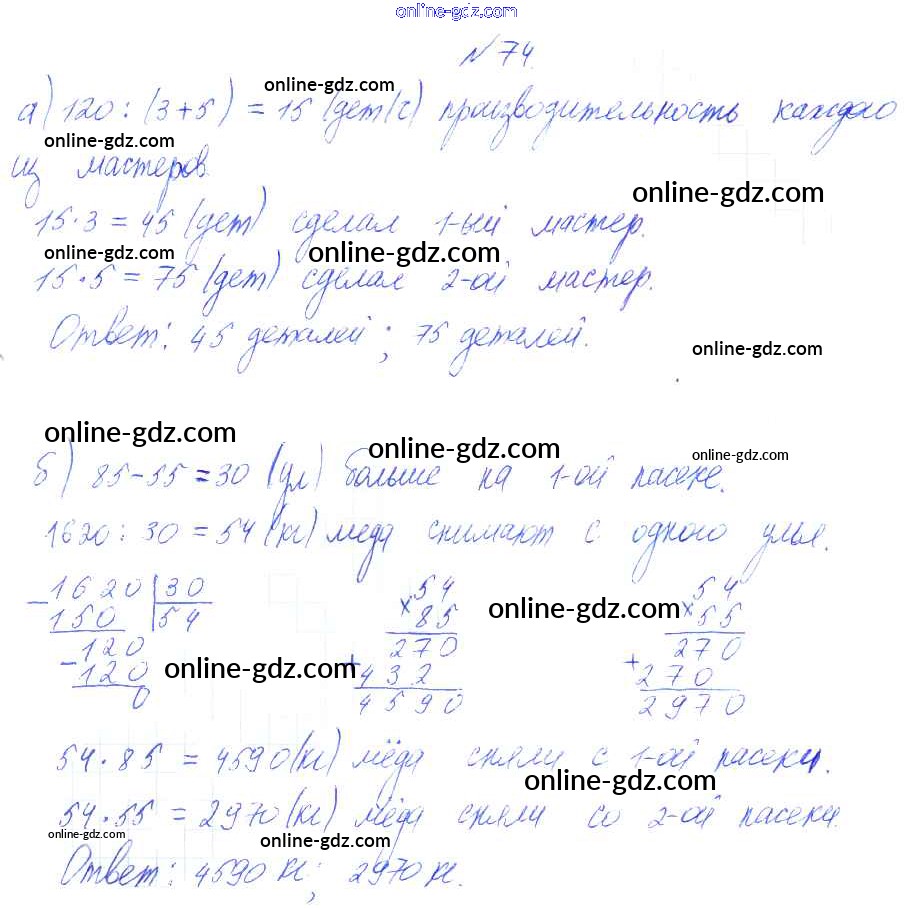 online-gdz.com
№ 74.
online-gdz.com
а) 120 : (3+5) = 15 (дет/ч) производительность каждого
online-gdz.com
из мастеров.
online-gdz.com
15·3 = 45 (дет) сделал 1-ый мастер.
online-gdz.com online-gdz.com
15·5 = 75 (дет) сделал 2-ой мастер.
Ответ: 45 деталей; 75 деталей.
online-gdz.com
online-gdz.com online-gdz.com online-gdz.com
б) 85-55 = 30 (ул) больше на 1-ой пасеке.
1620 : 30 = 54 (кг) меда снимают с одного улья.
- 1620 | 30 54 54
150 54 × 85 online-gdz.com × 55
- 120 270 270
120 online-gdz.com + 432 + 270
0 4590 2970
54·85 = 4590 (кг) мёда сняли с 1-ой пасеки.
online-gdz.com
54·55 = 2970 (кг) мёда сняли со 2-ой пасеки.
online-gdz.com online-gdz.com
Ответ: 4590 кг; 2970 кг.
online-gdz.com